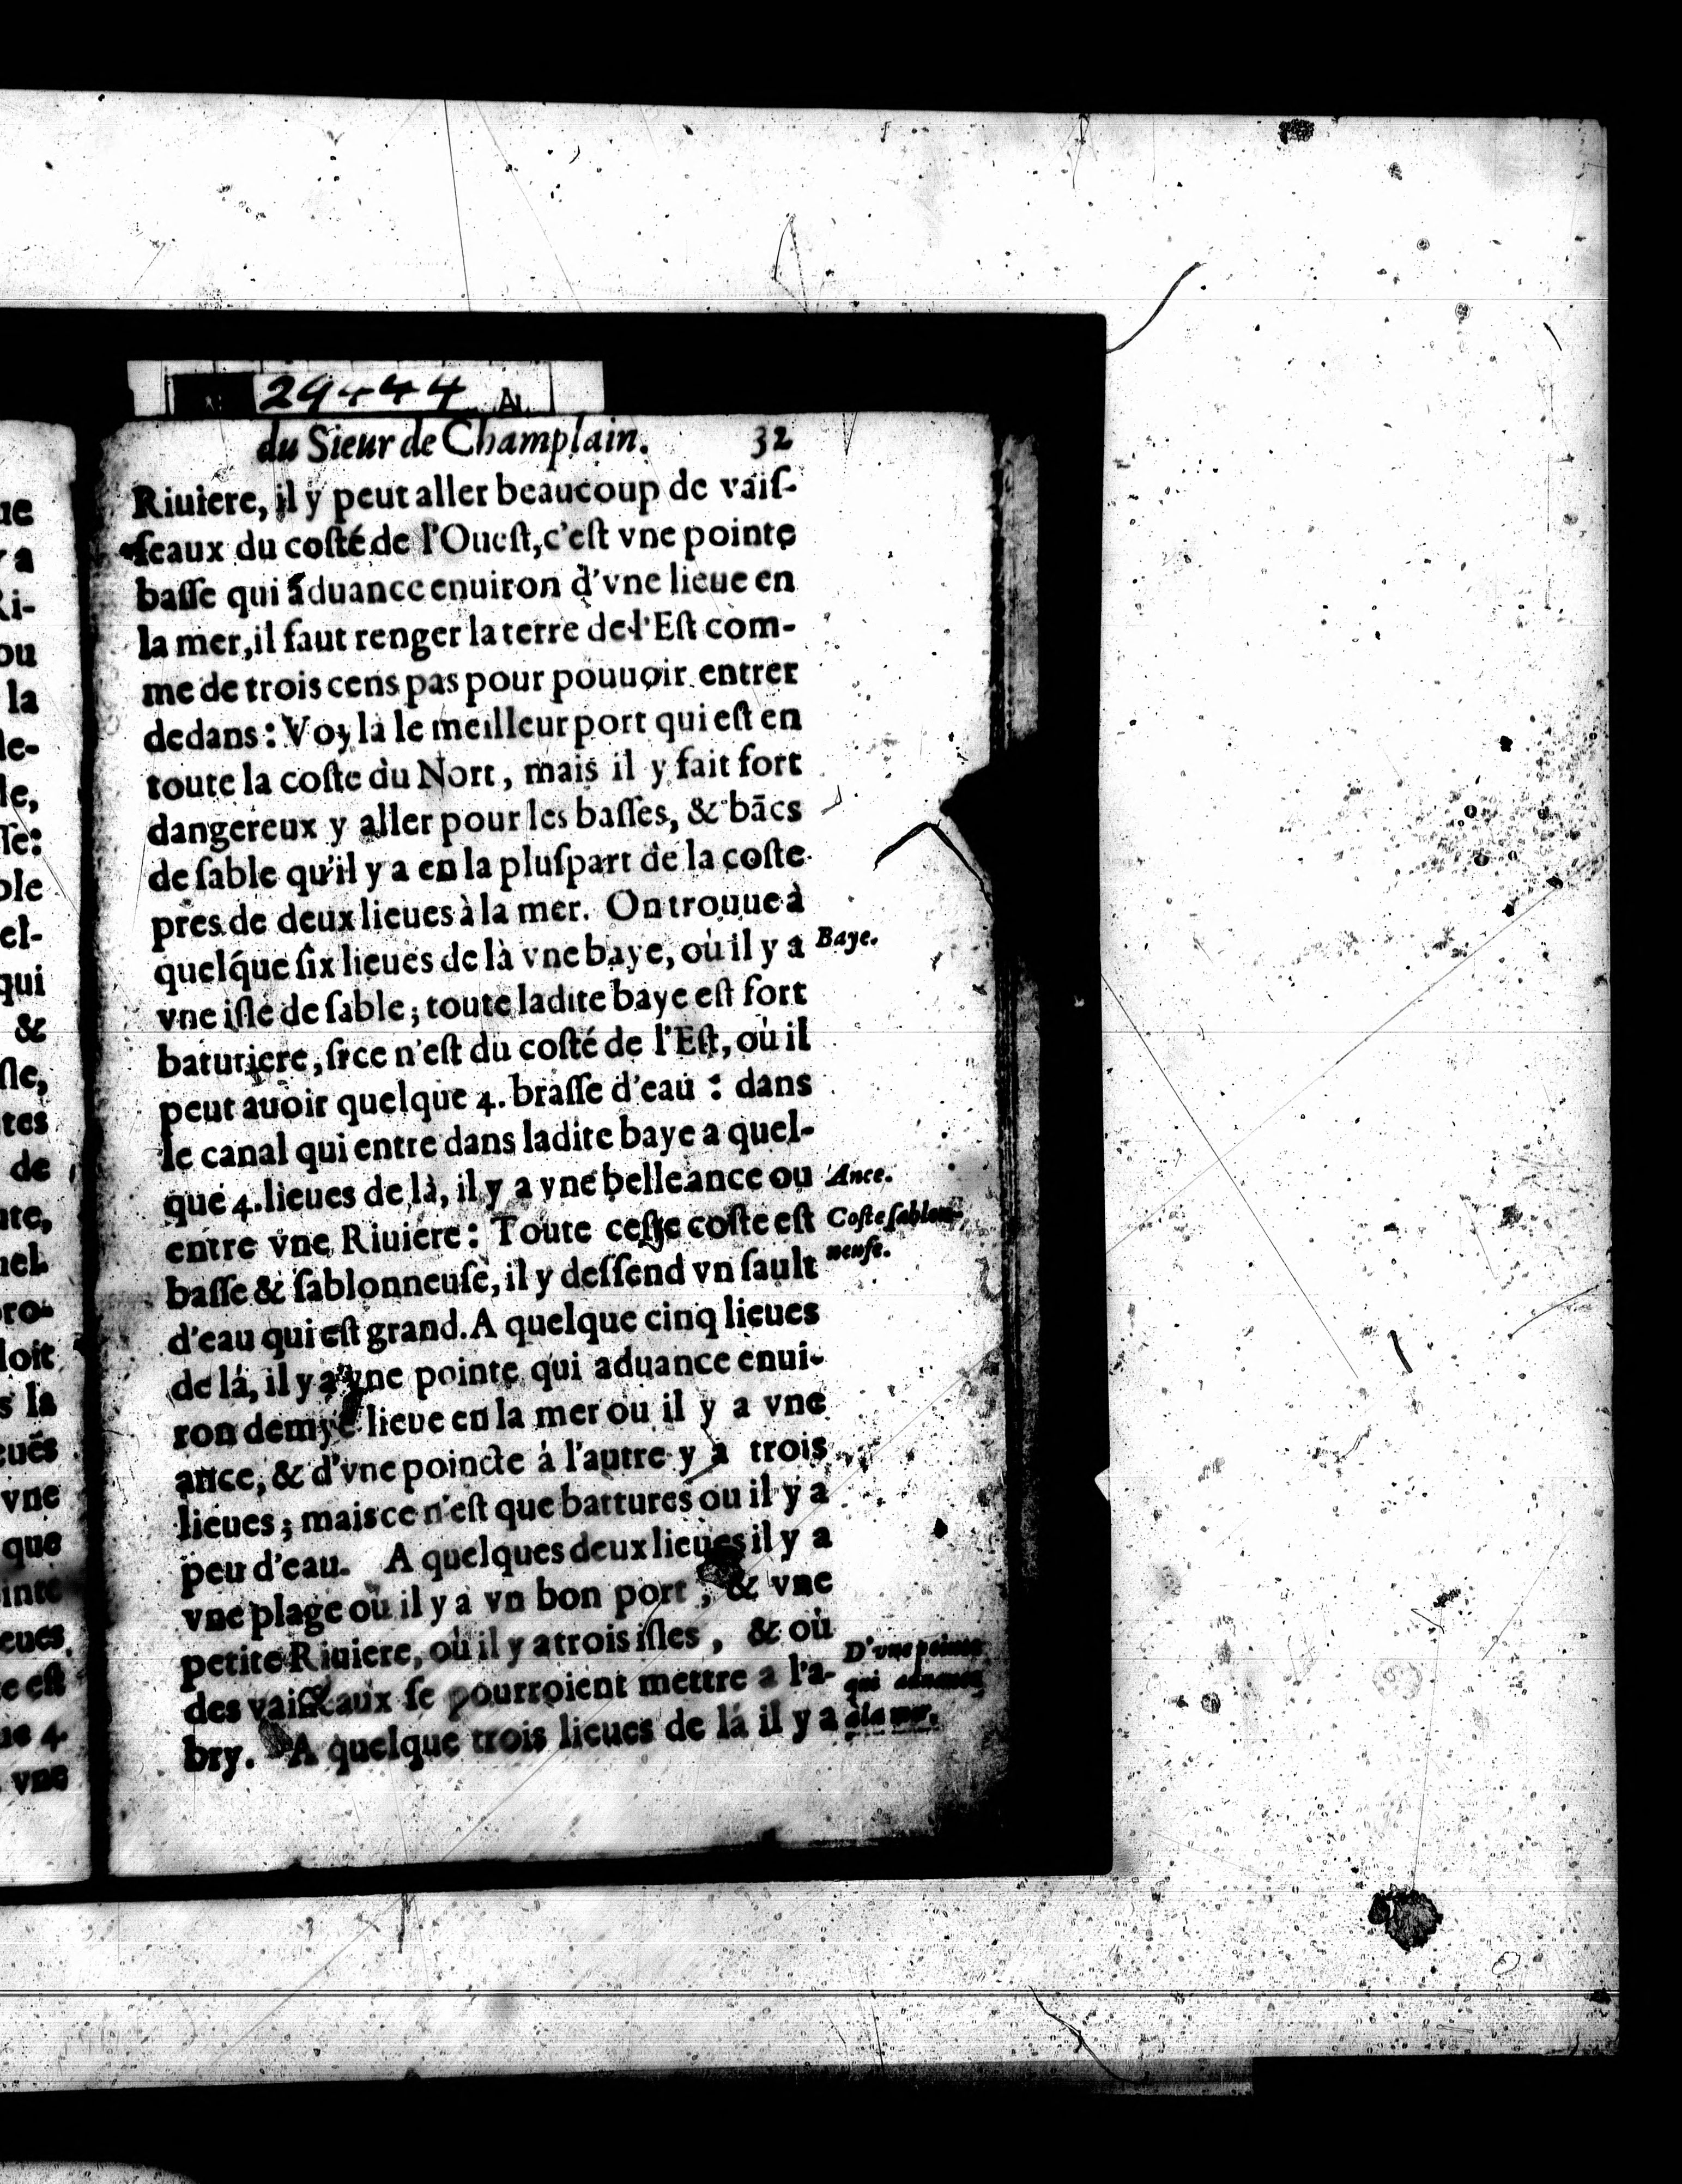 29444 A
du Sieur de Champlain. 32
Riuiere, il y peut aller beaucoup de vaiſ-
ſeaux du coſté de l'Oueſt, c'eſt vne pointe
baſſe qui aduance enuiron d'vne lieue en
la mer, il faut renger la terre de l'Eſt com-
me de trois cens pas pour pouuoir entrer
dedans : Voy la le meilleur port qui eſt en
toute la coſte du Nort, mais il y fait fort
dangereux y aller pour les baſſes, & bācs
de ſable qu'il y a en la pluſpart de la coſte
pres de deux lieues à la mer. On trouue à
quelque ſix lieues de là vne baye, où il y a
Baye.
vne iſle de ſable ; toute ladite baye eſt fort
baturiere, ſi ce n'eſt du coſté de l'Eſt, où il
peut auoir quelque 4. braſſe d'eau : dans
le canal qui entre dans ladite baye a quel-
que 4. lieues de là, il y a vne belle ance ou
Ance.
entre vne Riuiere : Toute ceſte coſte eſt
Coſte ſablon-
baſſe & ſablonneuſe, il y deſſend vn ſault
neuſe.
d'eau qui eſt grand. A quelque cinq lieues
de là, il y a vne pointe qui aduance enui-
ron demye lieue en la mer ou il y a vne
ance, & d'vne poincte à l'autre y a trois
lieues ; mais ce n'eſt que battures ou il y a
peu d'eau. A quelques deux lieues il y a
vne plage où il y a vn bon port, & vne
petite Riuiere, où il y a trois iſles, & où
D'vne pointe
des vaiſſeaux ſe pourroient mettre a l'a-
qui aduance
bry. A quelque trois lieues de là il y a
à la mer.
ue
y a
Ri-
ou
la
le-
le,
ſſe:
ble
el-
qui
&
ſle,
tes
de
nte,
uel
pro-
loit
s la
eués
vne
que
inte
eues
e eſt
ue 4.
vne